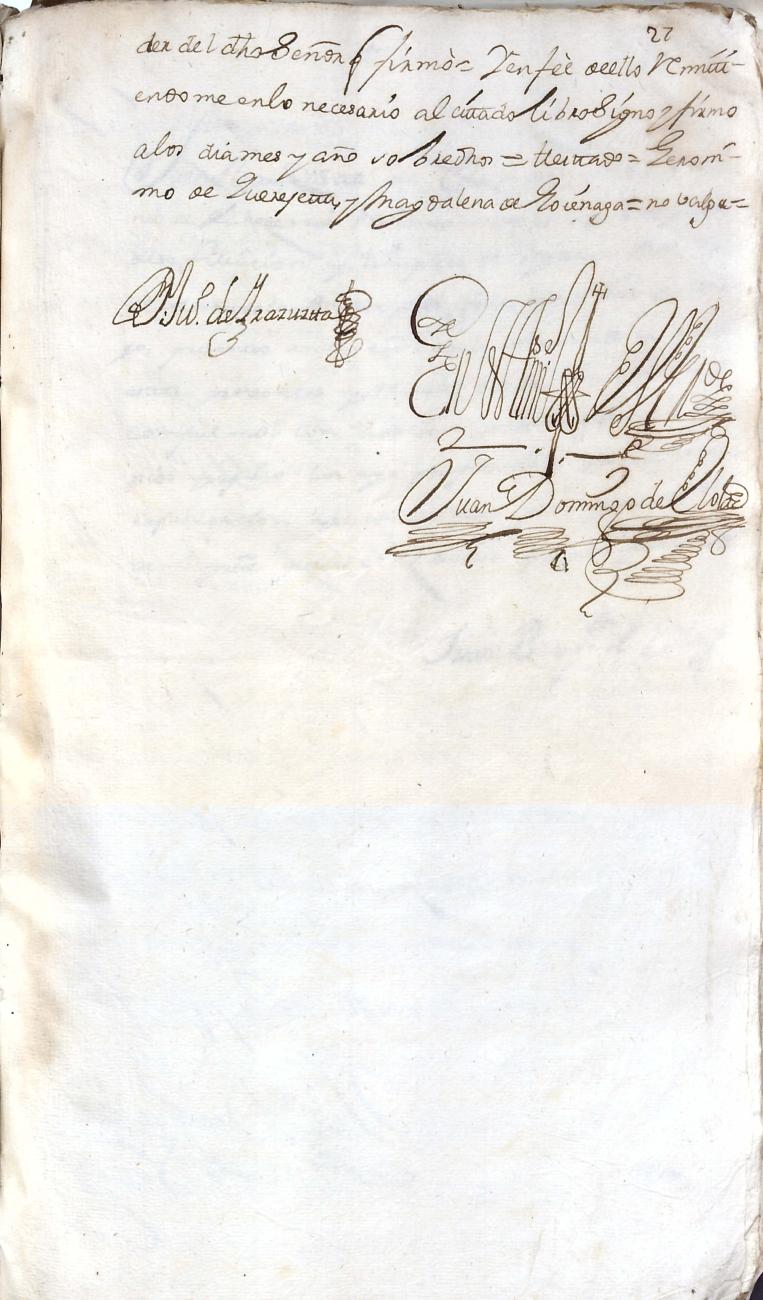 27
der del dho Señor q firmò = Yen feè deello Remiti-
endome enlo necesario al cittado libro Signo y firmo
alos dia mes y año sobredhos = tteittado = Geroni-
mo de Querejetta, y Magdalena de Goienaga = no valga =
Jua. de Yrazuzta
En testimº de Verdad
Juan Domingo de